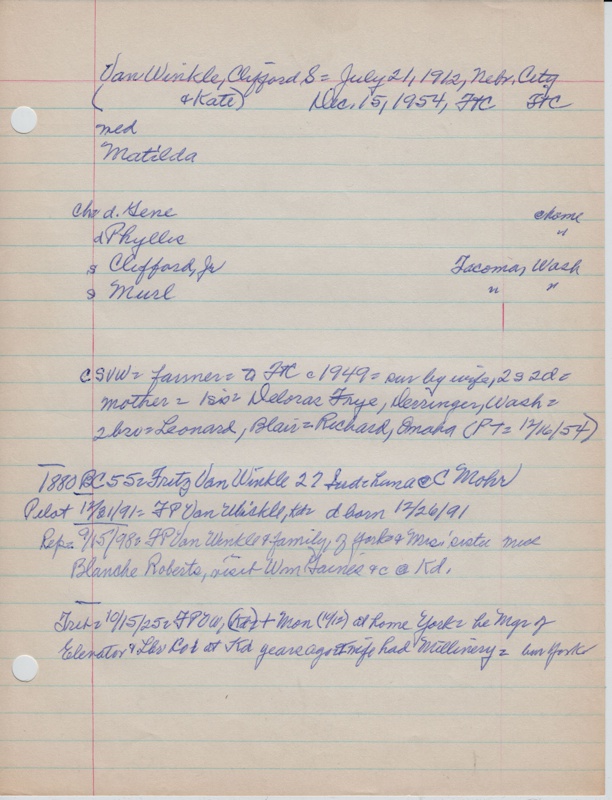 Van Winkle, Clifford S = July 21, 1912, Nebr. City
( & Kate) Dec. 15, 1954, FtC FtC
med
Matilda
ch= d. Gene @home
d Phyllis "
s Clifford, Jr Tacoma, Wash
s Murl " "
CSVW = farmer = to FtC c 1949 = sur by wife, 2 s 2 d =
mother = 1 sis = Deloras Frye, Dersinger, Wash =
2 bro = Leonard, Blair = Richard, Omaha (PT = 12/16/54)
1880 BC 55 = Fritz Van Winkle 27 Ind = Luna @ C Mohr
Pilot 12/31/91 = FP Van Winkle, Kd = d born 12/26/91
Rep = 9/15/98 = FP Van Winkle & family, of York & Mrs' sister
Blanche Roberts, visit Wm Gaines & c @ Kd.
10/15/25 = FPVW, (Kd) + Mon (10/12) at home York = he Mgr of
Elevator & Lbr Co at Kd years ago wife had Millinery = bur York